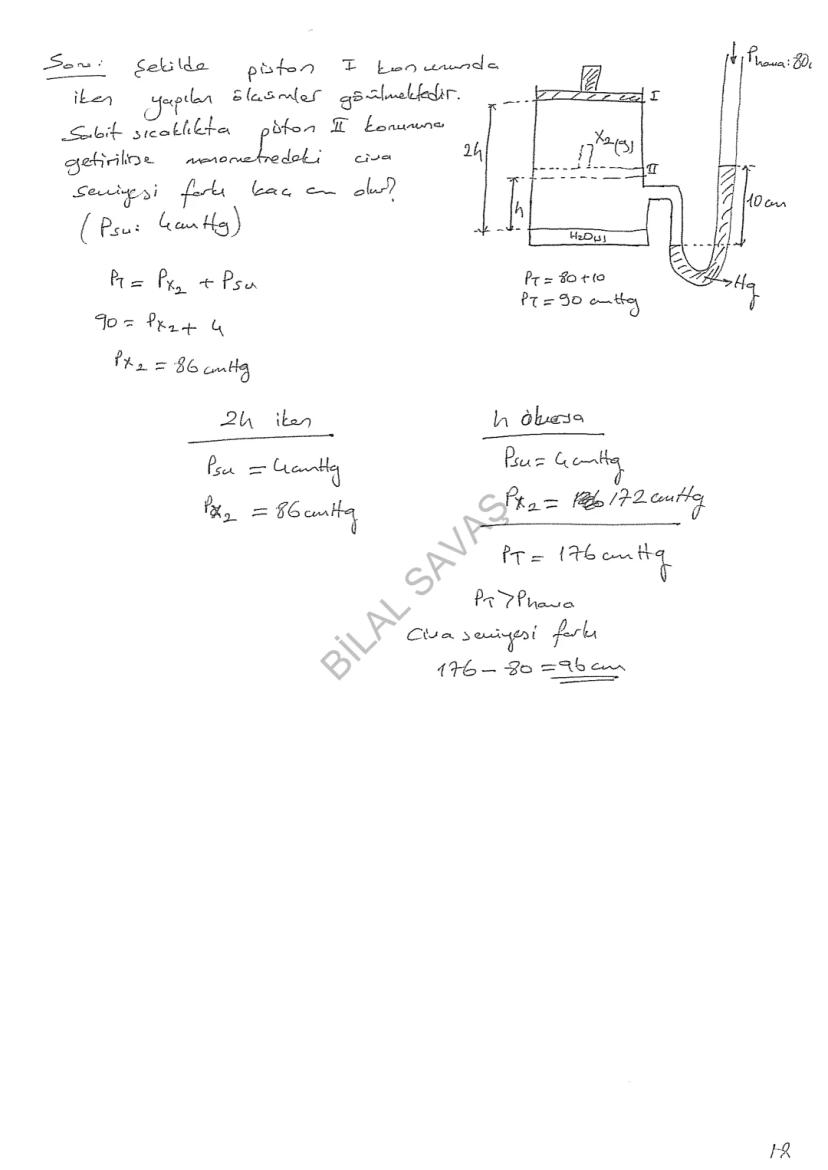 Soru: Şekilde piston I konumunda
iken yapılan ölçümler görülmektedir.
Sabit sıcaklıkta piston II konumuna
getirilirse manometredeki civa
seviyesi farkı kaç cm olur?
(Psu: 4cmHg)
Phava: 80
I
X2(g)
2h
II
h
10cm
H2O(s)
Hg
PT = 80+10
PT = 90 cmHg
PT = PX2 + Psu
90 = PX2 + 4
PX2 = 86 cmHg
2h iken
Psu = 4cmHg
PX2 = 86cmHg
h olursa
Psu = 4cmHg
PX2 = 172 cmHg
PT = 176 cmHg
PT > Phava
Civa seviyesi farkı
176 - 80 = 96 cm
BİLAL SAVAŞ